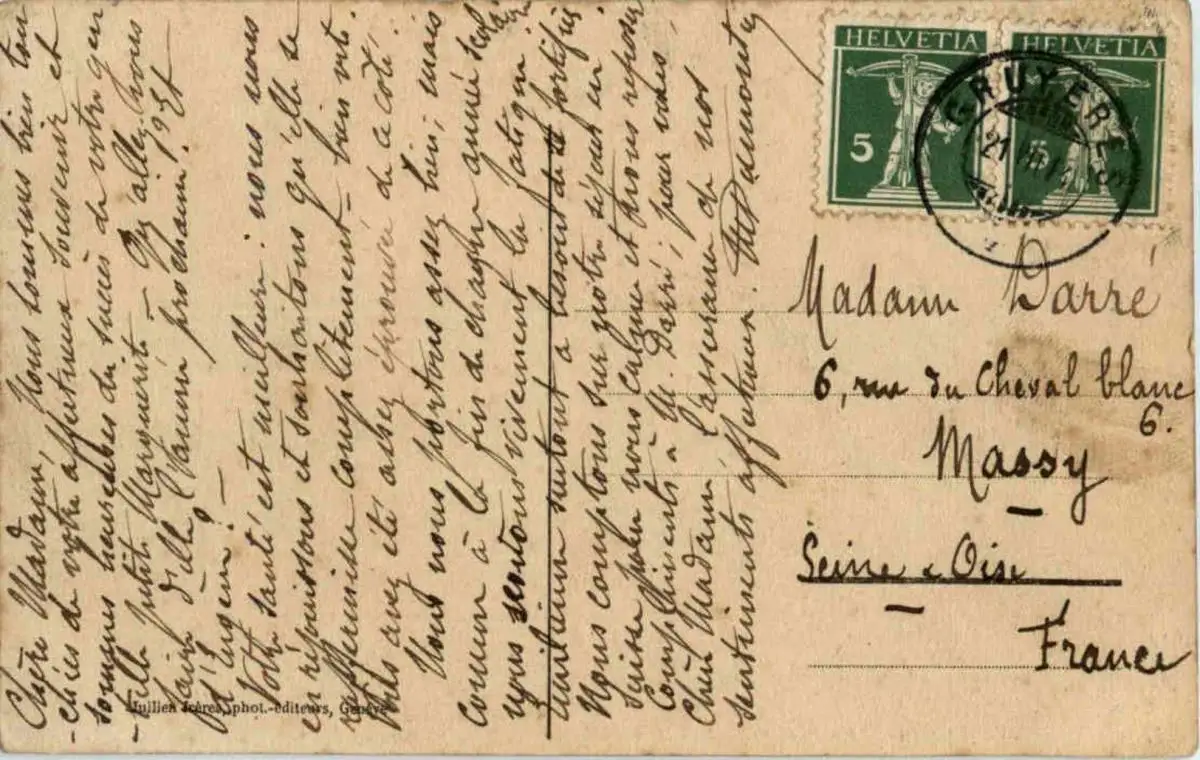 Chère Madame, Nous sommes bien tou
-chées de votre affectueux souvenir et
sommes heureuses du succès de votre gen
-tille petite Marguerite. Qu'allez-vous
faire d'elle l'année prochaine? est
d'Ingem?
Votre santé est meilleure: nous nous
en réjouissons et souhaitons qu'elle se
raffermisse complètement bien vite.
Vous avez été assez éprouvée de ce côté.
Nous nous portons assez bien; mais
comme à la fin de chaque année scolaire
nous sentons vivement la fatigue.
surtout a besoin de se fortifier
Nous comptons sur notre séjour en
Suisse pour nous calmer et nous reposer
Compliments à M. Darré; pour vous,
Chère Madame l'assurance de nos
sentiments affectueux.
Jullien frères, phot.-éditeurs, Genève
HELVETIA
5
HELVETIA
5
GRUYÈRES
21
Madame Darré
6, rue du Cheval blanc
6.
Massy
Seine & Oise
France